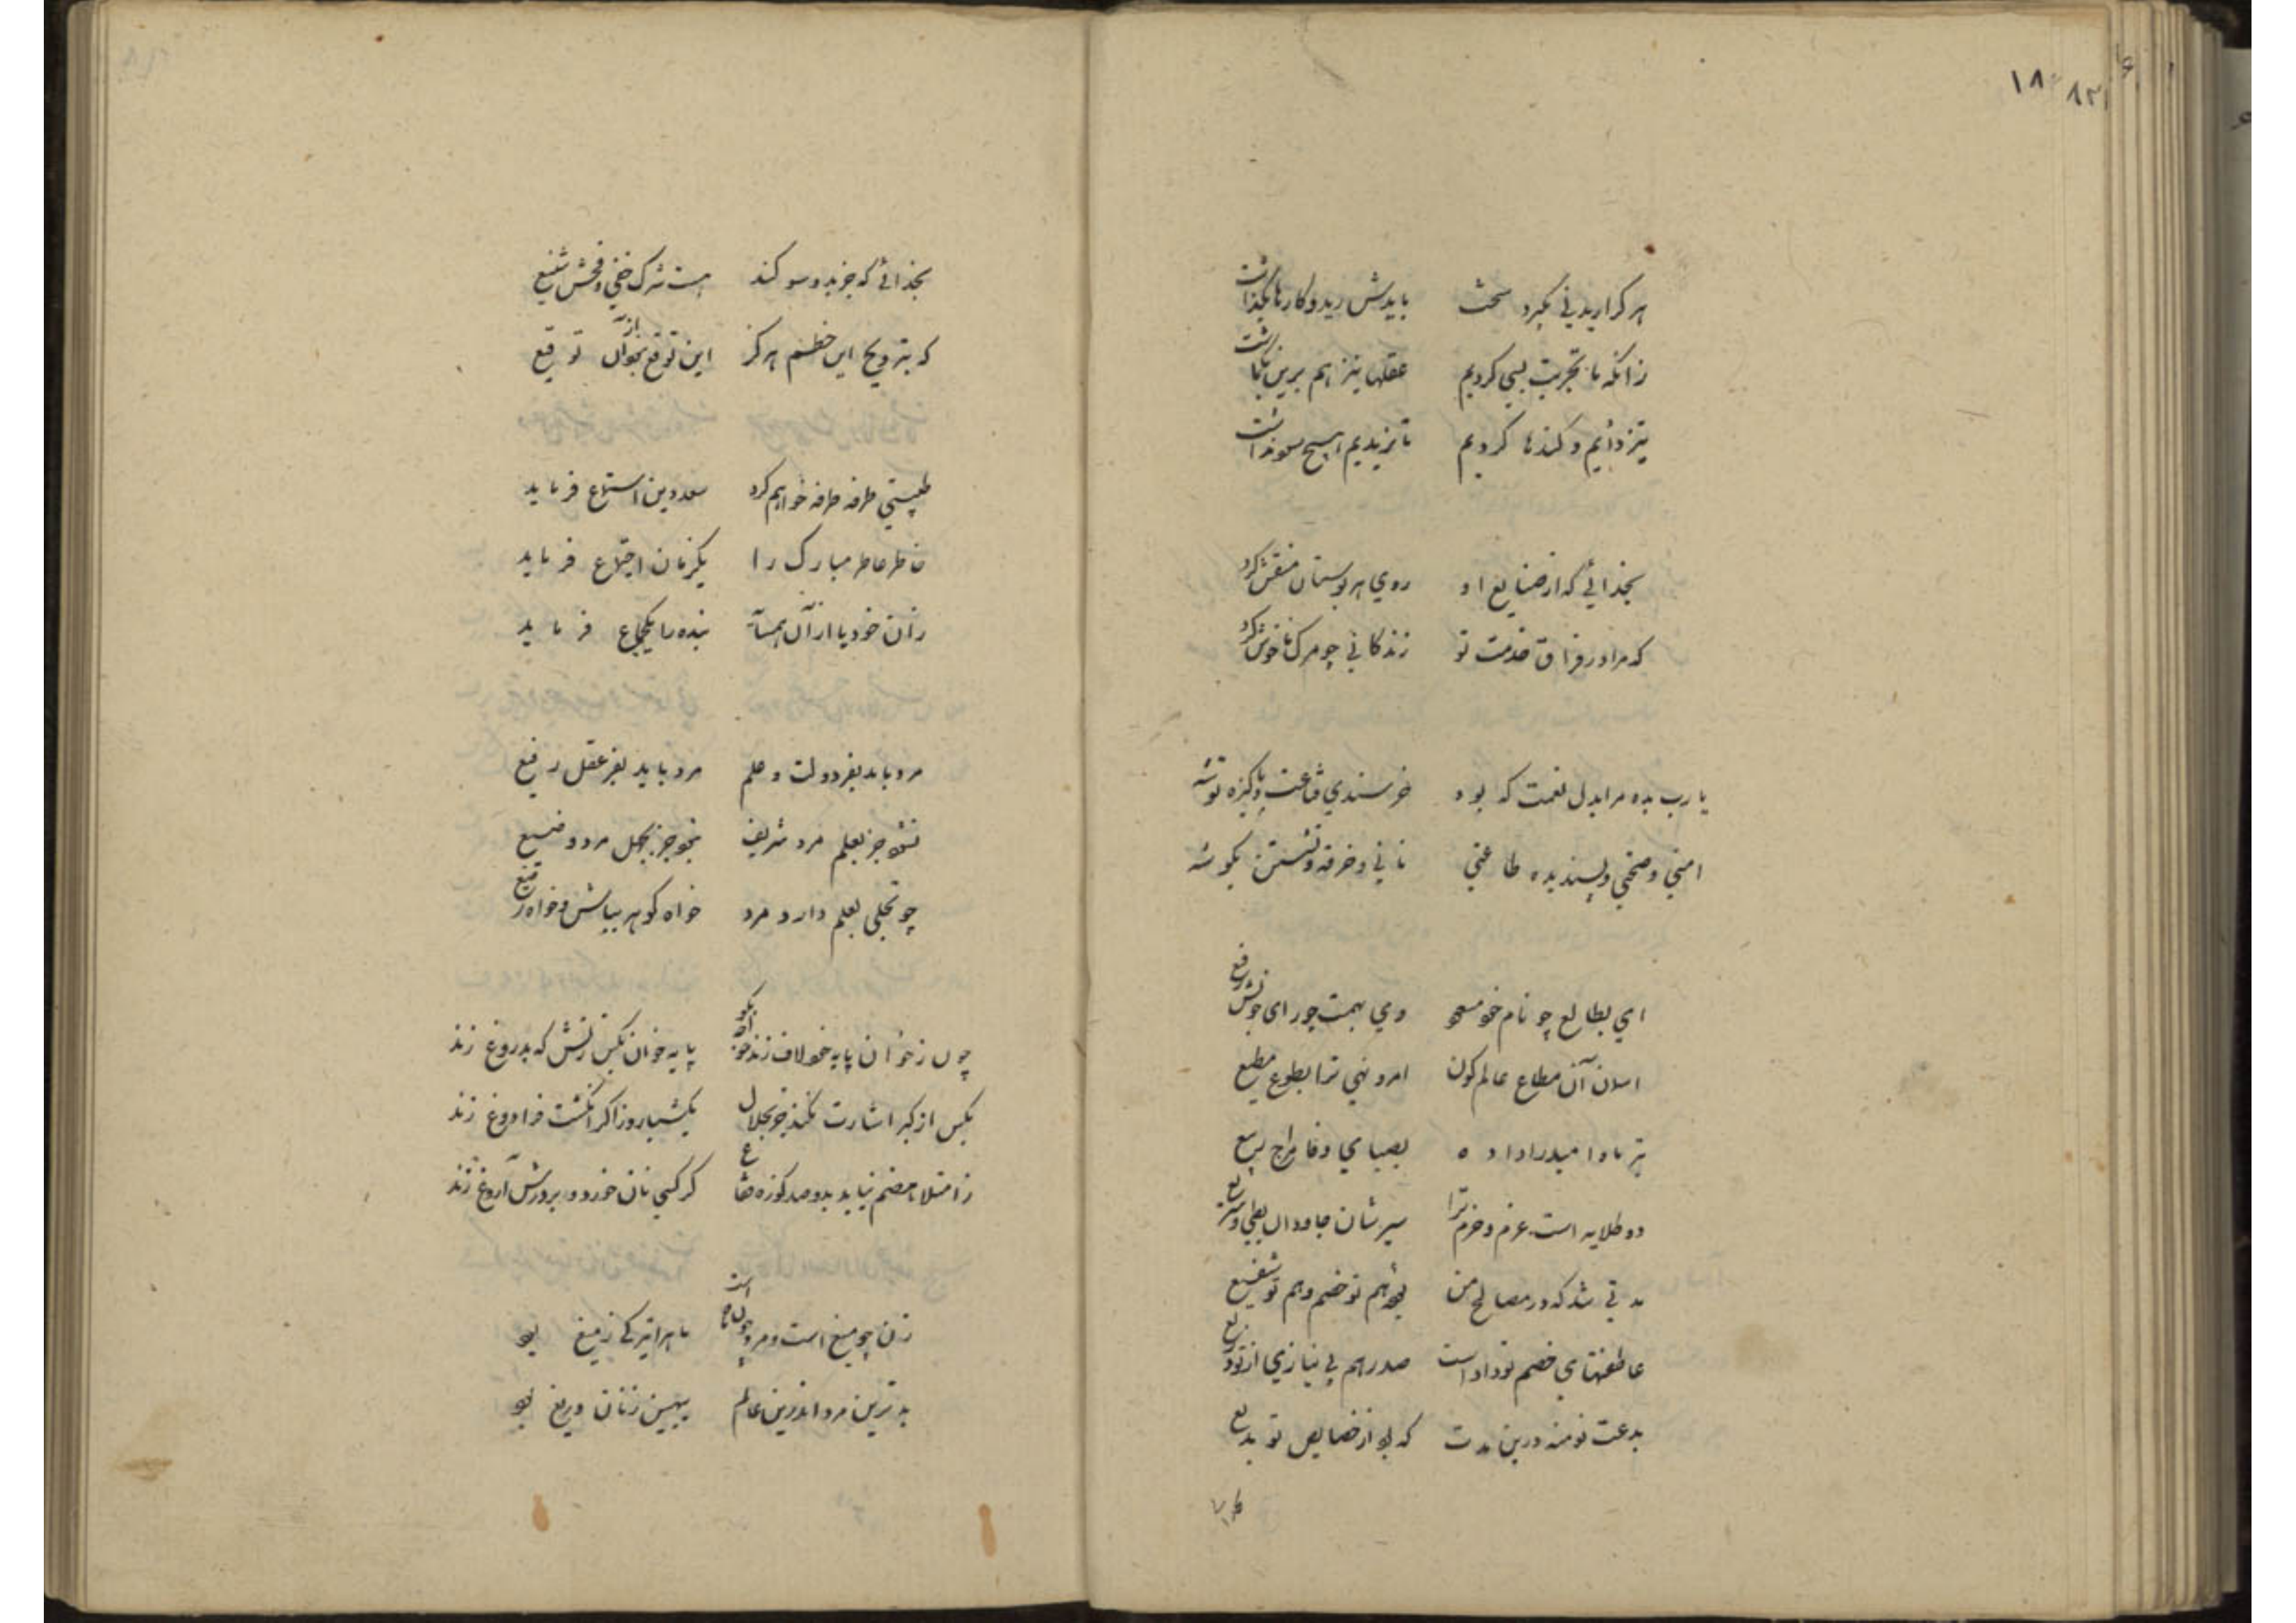 ۱۸۰ ۸۳
هر کرا ریدنی بگیرد سخت بایدش رید و کارها بگذاشت
زانکه ما تجربت بسی کردیم عقلها نیز هم برین بگماشت
تیز دادیم و گندها کردیم تا نریدیم هیچ سود نداشت
بخدائی که از صنایع او روی هر بوستان منقش کرد
که مرا در فراق خدمت تو زندگانی چو مرگ ناخوش کرد
یا رب بده مرا بدل نعمت که بود خرسندی و قناعت و پاکیزه توشه
امنی و صحتی و پسندیده طاعتی نانی و خرقه و نشستن بگوشه
ای بطالع چو نام خود مسعود وی بهمت چو رای خویش رفیع
آن مطاع عالم کون امر و نهی ترا بطوع مطیع
امید را داده
دو طلایه است عزم و حزم ترا سیرشان جاودان بطی و سریع
مدتی شد که در مصالح من بود هم تو خصم و هم تو شفیع
خصم تو داد است صدرهم بی نیازی از
بدعت نو منه درین مدت که بود از خصایص تو بدیع
بخدائی که جز بدو سوگند هست شرک خفی و فحش شنیع
که بترویج این خطم هرگز این توقع بخوان توقیع
طیبتی طرفه طرفه خواهم کرد سعد دین استماع فرماید
خاطر عاطر مبارک را یکزمان اجتماع فرماید
زان خود یا از آن همسایه بنده را یکجماع فرماید
مرد باید بفر دولت و علم مرد باید بفر عقل رفیع
نشود جز بعلم مرد شریف نبود جز بجهل مرد وضیع
چو تجلی بعلم دارد مرد خواه کوهر بباش و خواه رقیع
چون ز خوان پایه خود لاف زند خواجه بگو پایه خوان بکس زنش که بدروغ زند
بکس از کبر اشارت نکند جز بخلال یکشبانروز اگر انگشت فرا دوغ زند
ز امتلا هضم نیاید بدو صد کوزه فقاع گر کسی نان خورد و بر درش آروغ زند
زن چو میغ است و مرد چون ماه است ماه را تیرگی ز میغ بود
بدترین مرد اندرین عالم ببهین زنان دریغ بود